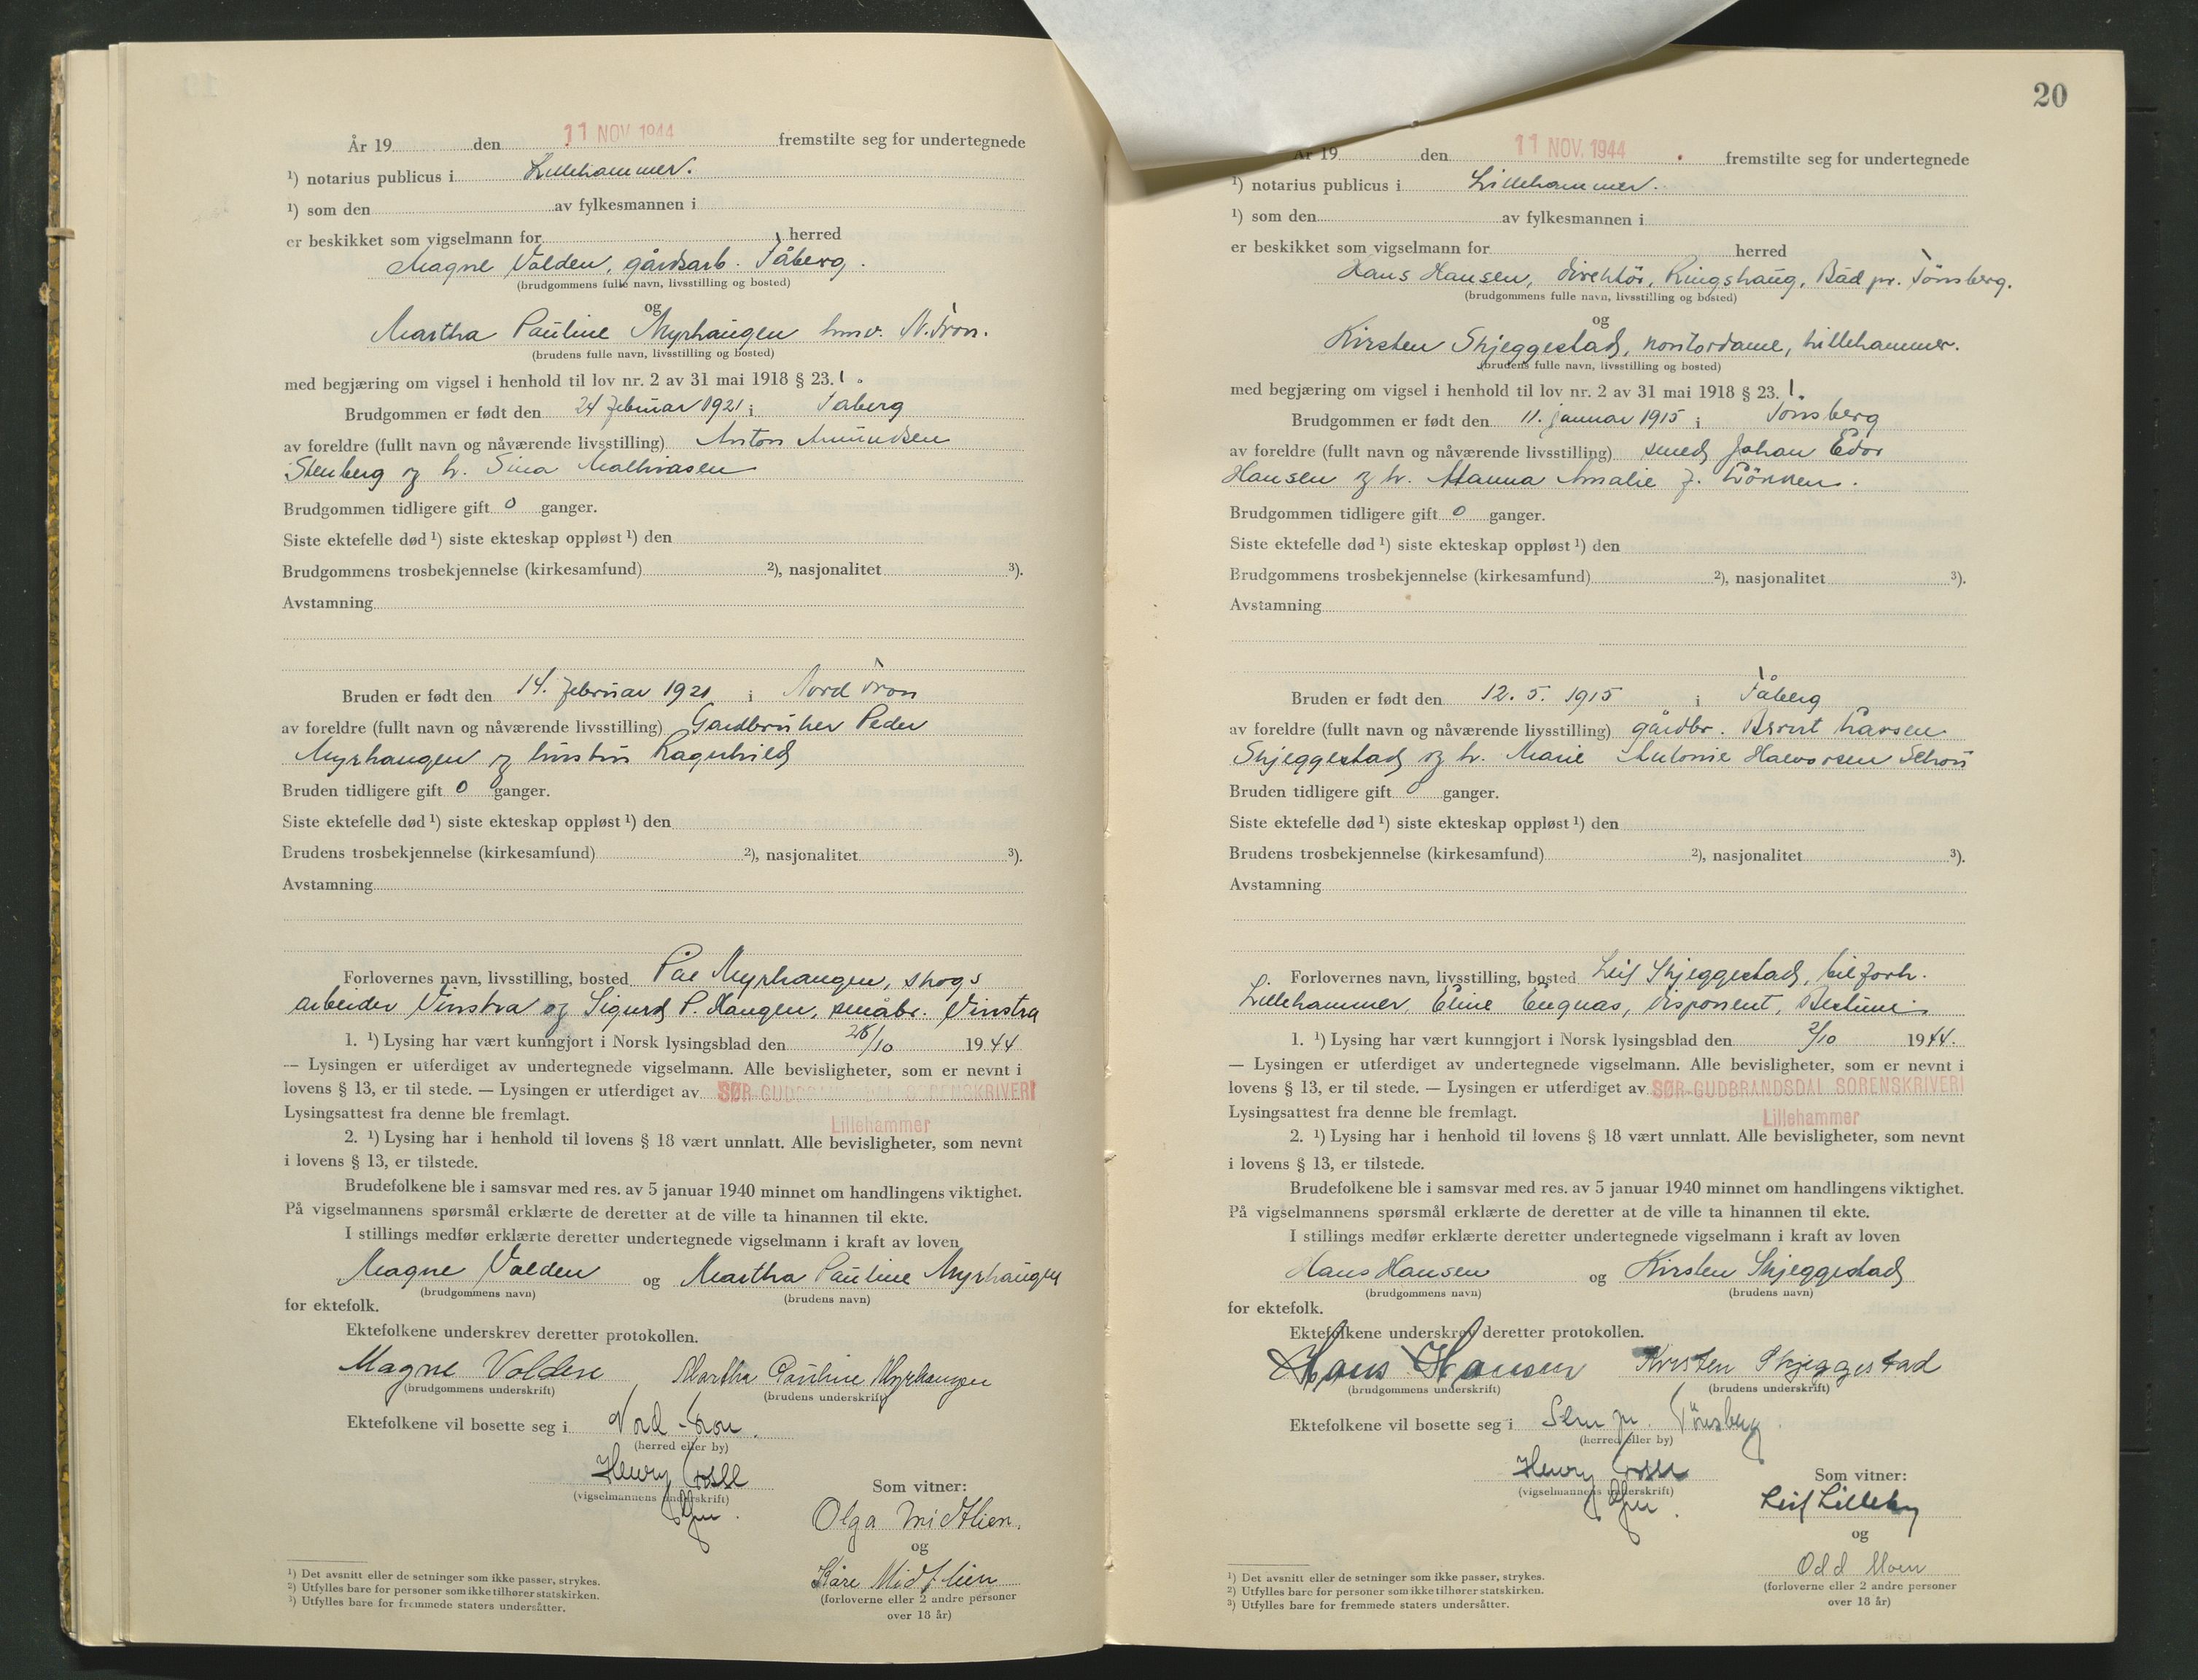 År 19 den 11 NOV. 1944 fremstilte seg for undertegnede
¹) notarius publicus i Lillehammer.
¹) som den av fylkesmannen i
er beskikket som vigselmann for herred
Magne Volden, gårdsarb. Fåberg.
(brudgommens fulle navn, livsstilling og bosted)
og
Martha Pauline Myrhaugen hmv. N. Fron.
(brudens fulle navn, livsstilling og bosted)
med begjæring om vigsel i henhold til lov nr. 2 av 31 mai 1918 § 23.
Brudgommen er født den 24 februar 1921 i Faberg
av foreldre (fullt navn og nåværende livsstilling) Anton Amundsen
Stenberg og h. Sina
Brudgommen tidligere gift 0 ganger.
Siste ektefelle død ¹) siste ekteskap oppløst ¹) den
Brudgommens trosbekjennelse (kirkesamfund) ²), nasjonalitet ³).
Avstamning
Bruden er født den 14. februar 1921 i Nord Fron
av foreldre (fullt navn og nåværende livsstilling) Gardbruker Peder
Myrhaugen og hustru Ragnhild
Bruden tidligere gift 0 ganger.
Siste ektefelle død ¹) siste ekteskap oppløst ¹) den
Brudens trosbekjennelse (kirkesamfund) ²), nasjonalitet ³).
Avstamning
Forlovernes navn, livsstilling, bosted Pål Myrhaugen, skogs
arbeider Vinstra og Sigurd P. Haugen, småbr. Vinstra
1. ¹) Lysing har vært kunngjort i Norsk lysingsblad den /10 1944
— Lysingen er utferdiget av undertegnede vigselmann. Alle bevisligheter, som er nevnt i
lovens § 13, er til stede. — Lysingen er utferdiget av SØR-GUDBRANDSDAL SORENSKRIVERI
Lysingsattest fra denne ble fremlagt. Lillehammer
2. ¹) Lysing har i henhold til lovens § 18 vært unnlatt. Alle bevisligheter, som nevnt
i lovens § 13, er tilstede.
Brudefolkene ble i samsvar med res. av 5 januar 1940 minnet om handlingens viktighet.
På vigselmannens spørsmål erklærte de deretter at de ville ta hinannen til ekte.
I stillings medfør erklærte deretter undertegnede vigselmann i kraft av loven
Magne Volden og Martha Pauline Myrhaugen
(brudgommens navn) (brudens navn)
for ektefolk.
Ektefolkene underskrev deretter protokollen.
Magne Volden Martha Pauline Myrhaugen
(brudgommens underskrift) (brudens underskrift)
Ektefolkene vil bosette seg i Nord-Fron.
(herred eller by)
Henry
(vigselmannens underskrift)
Som vitner:
Olga Midtlien.
og
Kåre Midtlien
(forloverne eller 2 andre personer
over 18 år)
¹) Det avsnitt eller de setninger som ikke passer, strykes.
²) Utfylles bare for personer som ikke tilhører statskirken.
³) Utfylles bare for fremmede staters undersåtter.
20
År 19 den 11 NOV. 1944 fremstilte seg for undertegnede
¹) notarius publicus i Lillehammer.
¹) som den av fylkesmannen i
er beskikket som vigselmann for herred
Hans Hansen, direktör, Ringshaug, Båd pr. Tönsberg.
(brudgommens fulle navn, livsstilling og bosted)
og
Kirsten Skjeggestad, kontordame, Lillehammer.
(brudens fulle navn, livsstilling og bosted)
med begjæring om vigsel i henhold til lov nr. 2 av 31 mai 1918 § 23.
Brudgommen er født den 11. januar 1915 i Tönsberg
av foreldre (fullt navn og nåværende livsstilling) smed Johan Edor
Hansen og h. Hanna Amalie f.
Brudgommen tidligere gift 0 ganger.
Siste ektefelle død ¹) siste ekteskap oppløst ¹) den
Brudgommens trosbekjennelse (kirkesamfund) ²), nasjonalitet ³).
Avstamning
Bruden er født den 12. 5. 1915 i Fåberg
av foreldre (fullt navn og nåværende livsstilling) gårdbr. Bernt Larsen
Skjeggestad og h. Marie Antonie Halvorsen
Bruden tidligere gift 0 ganger.
Siste ektefelle død ¹) siste ekteskap oppløst ¹) den
Brudens trosbekjennelse (kirkesamfund) ²), nasjonalitet ³).
Avstamning
Forlovernes navn, livsstilling, bosted Leif Skjeggestad, bilforh.
Lillehammer, disponent,
1. ¹) Lysing har vært kunngjort i Norsk lysingsblad den 2/10 1944.
— Lysingen er utferdiget av undertegnede vigselmann. Alle bevisligheter, som er nevnt i
lovens § 13, er til stede. — Lysingen er utferdiget av SØR-GUDBRANDSDAL SORENSKRIVERI
Lysingsattest fra denne ble fremlagt. Lillehammer
2. ¹) Lysing har i henhold til lovens § 18 vært unnlatt. Alle bevisligheter, som nevnt
i lovens § 13, er tilstede.
Brudefolkene ble i samsvar med res. av 5 januar 1940 minnet om handlingens viktighet.
På vigselmannens spørsmål erklærte de deretter at de ville ta hinannen til ekte.
I stillings medfør erklærte deretter undertegnede vigselmann i kraft av loven
Hans Hansen og Kirsten Skjeggestad
(brudgommens navn) (brudens navn)
for ektefolk.
Ektefolkene underskrev deretter protokollen.
Hans Hansen Kirsten Skjeggestad
(brudgommens underskrift) (brudens underskrift)
Ektefolkene vil bosette seg i Sem pr. Tönsberg
(herred eller by)
Henry
(vigselmannens underskrift)
Som vitner:
Leif Lilleby
og
Odd Moen
(forloverne eller 2 andre personer
over 18 år)
¹) Det avsnitt eller de setninger som ikke passer, strykes.
²) Utfylles bare for personer som ikke tilhører statskirken.
³) Utfylles bare for fremmede staters undersåtter.